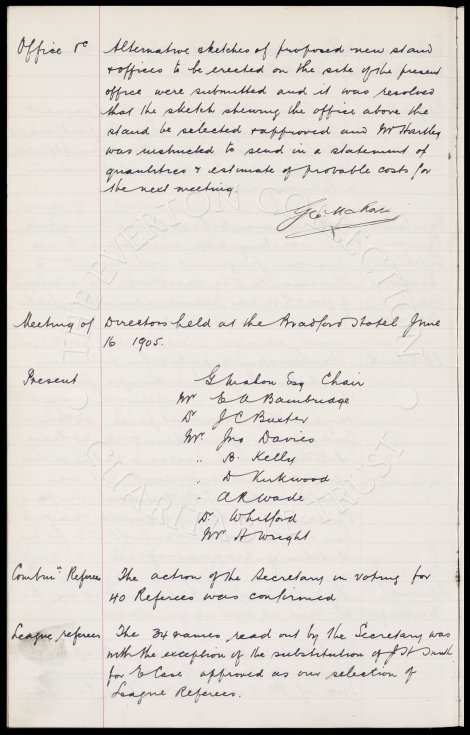 Office &c Alternative sketches of proposed new stand
& offices to be erected on the site of the present
office were submitted and it was resolved
that the sketch shewing the office above the
stand be selected & approved and Mr Hartley
was instructed to send in a statement of
quantities & estimate of probable costs for
the next meeting.
Geo Mahon
Meeting of Directors held at the Bradford Hotel June
16 1905.
Present G Mahon Esq Chair
Mr E A Bainbridge
Dr J C Baxter
Mr Jno Davies
" B. Kelly
" D Kirkwood
" A R Wade
Dr Whitford
Mr H Wright
Combinn Referees The action of the Secretary in voting for
40 Referees was confirmed
League referees The 34 names read out by the Secretary was
with the exception of the substitution of J H Smith
for E Case approved as our selection of
League Referees.
THE EVERTON COLLECTION
CHARITABLE TRUST